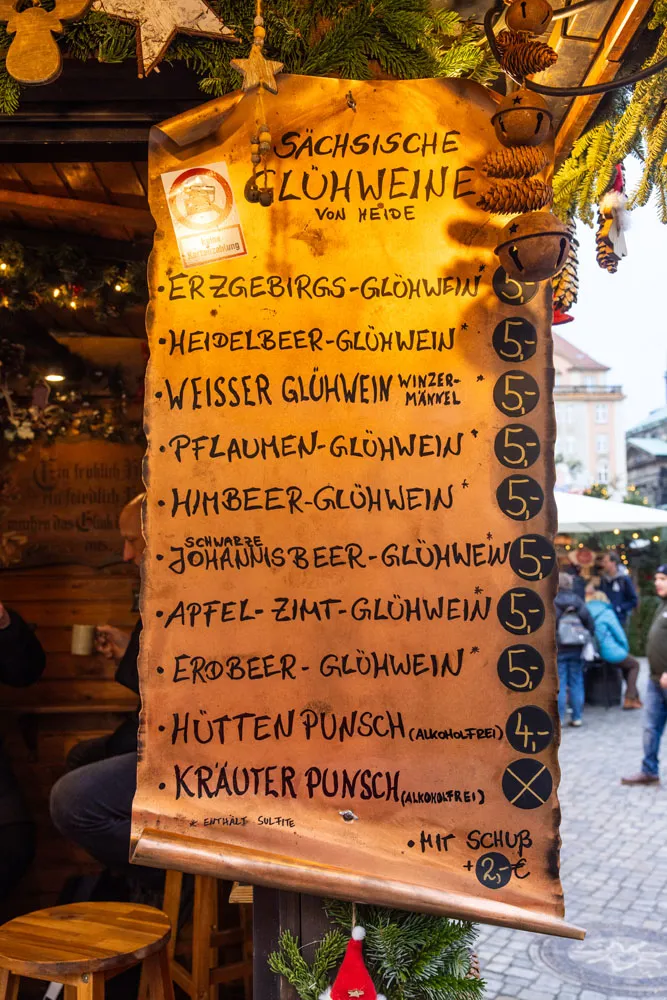 SÄCHSISCHE
GLÜHWEINE
VON HEIDE
Keine
Kartenzahlung
• ERZGEBIRGS-GLÜHWEIN* 5,-
• HEIDELBEER-GLÜHWEIN* 5,-
• WEISSER GLÜHWEIN WINZER-MÄNNEL * 5,-
• PFLAUMEN-GLÜHWEIN* 5,-
• HIMBEER-GLÜHWEIN* 5,-
• SCHWARZE JOHANNISBEER-GLÜHWEIN* 5,-
• APFEL-ZIMT-GLÜHWEIN* 5,-
• ERDBEER-GLÜHWEIN* 5,-
• HÜTTENPUNSCH (ALKOHOLFREI) 4,-
• KRÄUTERPUNSCH (ALKOHOLFREI)
* ENTHÄLT SULFITE
• MIT SCHUß
+ 2,-€
Ein fröhlich
machen das